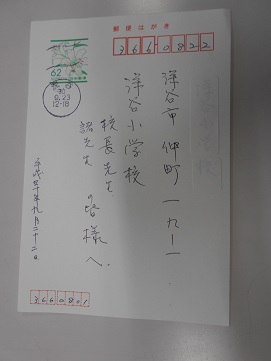 郵便はがき
366-0822
62
9.23
12-18
深谷市 仲町 一九ー一
深谷小学校
校長先生
諸先生 の皆様へ
平成三十年九月二十二日
3660801